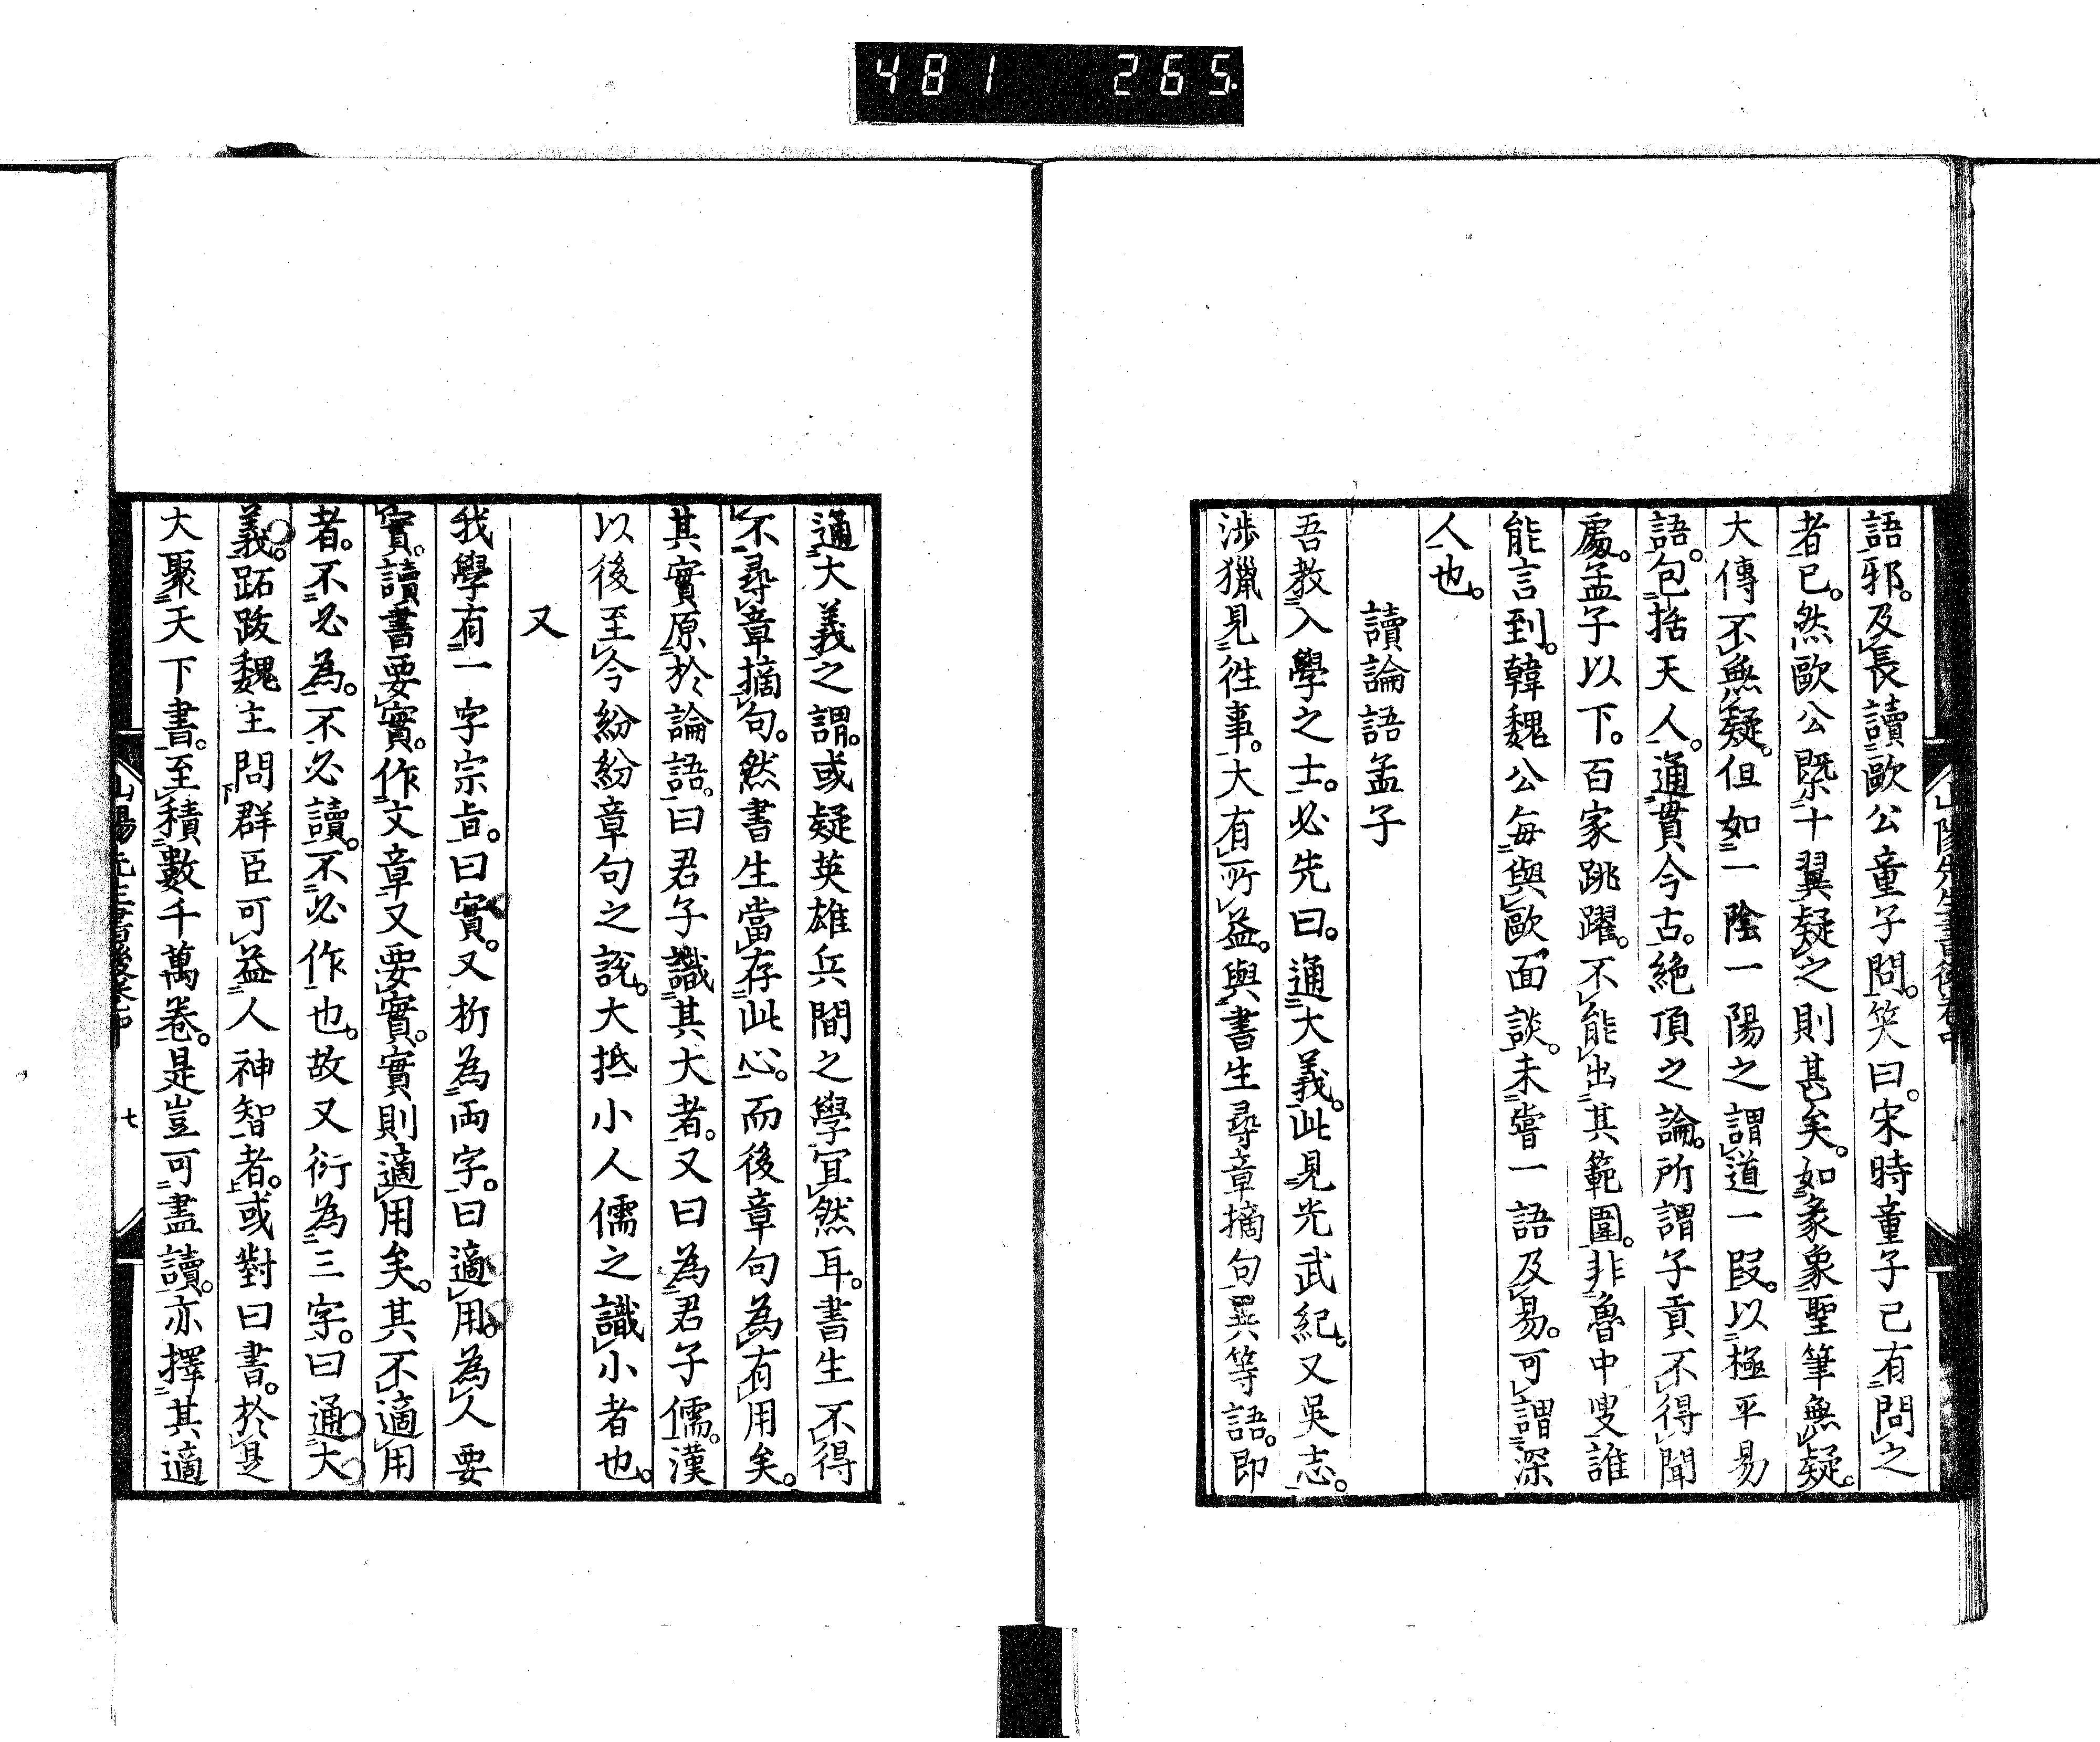 481 265
語邪。及長讀歐公童子問。笑曰。宋時童子已有問之
者已。然歐公既十翼疑之則甚矣。如彖象聖筆無疑。
大傳不無疑。但如一陰一陽之謂道一段。以極平易
語。包括天人。通貫今古。絶頂之論。所謂子貢不得聞
處。孟子以下。百家跳躍。不能出其範圍。非魯中叟誰
能言到。韓魏公毎與歐面談。未嘗一語及易。可謂深
人也。
讀論語孟子
吾教入學之士。必先曰。通大義。此見光武紀。又吳志。
渉獵見徃事。大有所益。與書生尋章摘句異等語。即
山陽先生書後卷中
通大義之謂。或疑英雄兵間之學宜然耳。書生不得
不尋章摘句。然書生當存此心。而後章句為有用矣。
其實原於論語。曰君子識其大者。又曰為君子儒。漢
以後至今紛紛章句之說。大抵小人儒之識小者也。
又
我學有一字宗旨。曰實。又析為両字。曰適用。為人要
實。讀書要實。作文章又要實。實則適用矣。其不適用
者。不必為。不必讀。不必作也。故又衍為三字。曰通大
義。跖跋魏主問群臣可益人神智者。或對曰書。於是
大聚天下書。至積數千萬卷。是豈可盡讀。亦擇其適
山陽先生書後卷中 七